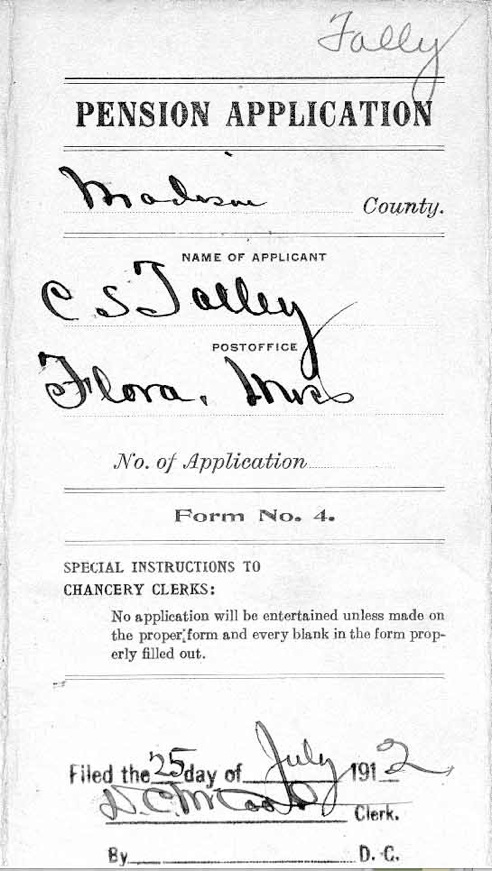 Talley
PENSION APPLICATION
Madison County.
NAME OF APPLICANT
C S Talley
POSTOFFICE
Flora, Miss
No. of Application
Form No. 4.
SPECIAL INSTRUCTIONS TO
CHANCERY CLERKS:
No application will be entertained unless made on
the proper form and every blank in the form prop-
erly filled out.
Filed the 25 day of July 1912
D. C. Clerk.
By D. C.